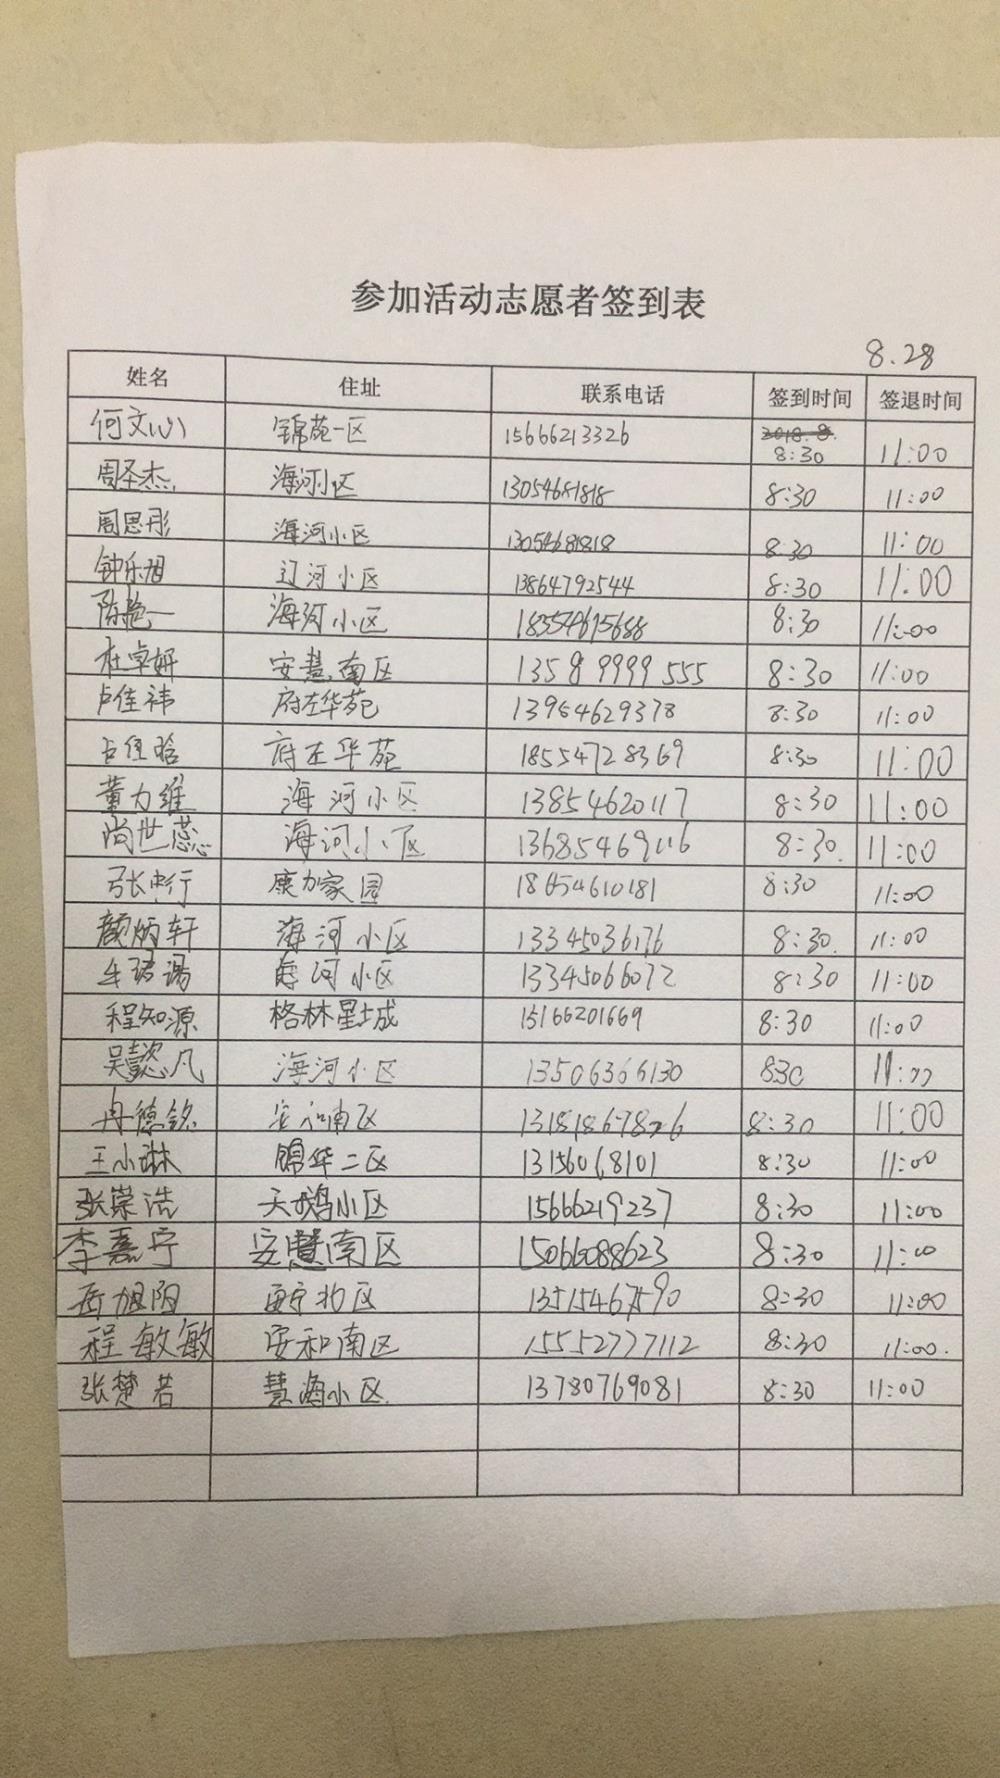 参加活动志愿者签到表
8.28
姓名 住址 联系电话 签到时间 签退时间
何文心 锦苑一区 15666213326 8:30 11:00
周圣杰 海河小区 13054681818 8:30 11:00
周思彤 海河小区 13054681818 8:30 11:00
钟乐旭 辽河小区 13864792544 8:30 11:00
陈艳一 海河小区 18354615688 8:30 11:00
杜卓妍 安慧南区 13589999555 8:30 11:00
卢佳祎 府左华苑 13954629378 8:30 11:00
卢佳晗 府左华苑 18554728369 8:30 11:00
董力维 海河小区 13854620117 8:30 11:00
尚世蕊 海河小区 13685469116 8:30. 11:00
张中行 康力家园 18654610181 8:30 11:00
颜炳轩 海河小区 13345036176 8:30. 11:00
海河小区 13345066072 8:30 11:00
程知源 格林星城 15166201669 8:30 11:00
吴懿凡 海河小区 13506366130 830 11:00
冉德铭 安和南区 8:30 11:00
王小琳 锦华二区 13156068101 8:30 11:00
张崇浩 天鹅小区 15666219237 8:30 11:00
李嘉宁 安慧南区 15066088623 8:30 11:00
岳旭阳 西宁北区 13515467590 8:30 11:00
程敏敏 安和南区 15552777112 8:30 11:00.
张楚若 慧海小区. 13780769081 8:30 11:00